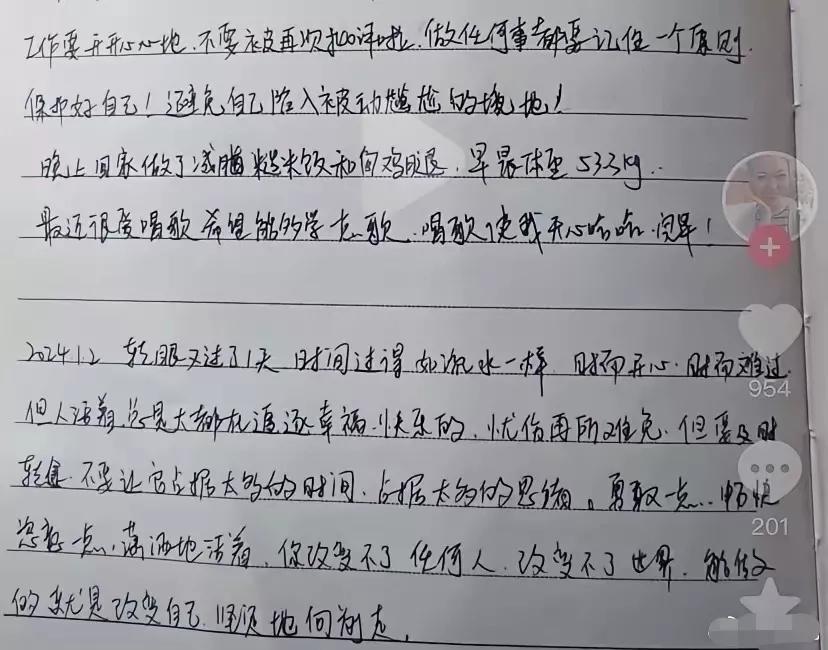 工作要开开心心地.不要被再次扣评啦.做任何事都要记住一个原则.
保护好自己！避免自己陷入被动尴尬的境地！
晚上回家做了减脂糙米饭和卤鸡腿.早晨体重53.3kg..
最近很爱唱歌希望能多学点歌.唱歌使我开心哈哈.

2024.1.2 转眼又过了1天 时间过得如流水一样.时而开心.时而难过.
但人活着.总是大都在追逐幸福.快乐的.忧伤再所难免.但要及时
转换.不要让它占据太多的时间.占据太多的思绪。勇敢一点..畅快
一点.潇洒地活着.你改变不了任何人.改变不了世界.能做
的就是改变自己.坚定地向前走.
954
201